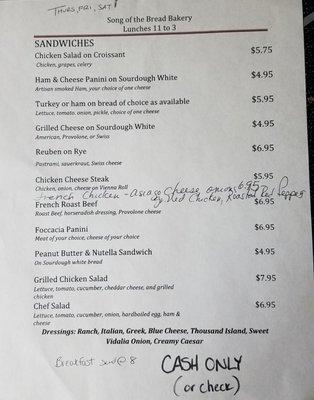 THURS, FRI, SAT!
Song of the Bread Bakery
Lunches 11 to 3
SANDWICHES
Chicken Salad on Croissant $5.75
Chicken, grapes, celery
Ham & Cheese Panini on Sourdough White $4.95
Artisan smoked Ham, your choice of one cheese
Turkey or ham on bread of choice as available $5.95
Lettuce, tomato, onion, pickle, choice of one cheese
Grilled Cheese on Sourdough White $4.95
American, Provolone, or Swiss
Reuben on Rye $6.95
Pastrami, sauerkraut, Swiss cheese
Chicken Cheese Steak $5.95
Chicken, onion, cheese on Vienna Roll
French Chicken - asiago Cheese, onions, 6.95
Chicken, Roasted Red Pepper
French Roast Beef $6.95
Roast Beef, horseradish dressing, Provolone cheese
Foccacia Panini $6.95
Meat of your choice, cheese of your choice
Peanut Butter & Nutella Sandwich $4.95
On Sourdough white bread
Grilled Chicken Salad $7.95
Lettuce, tomato, cucumber, cheddar cheese, and grilled
chicken
Chef Salad $6.95
Lettuce, tomato, cucumber, onion, hardboiled egg, ham &
cheese
Dressings: Ranch, Italian, Greek, Blue Cheese, Thousand Island, Sweet
Vidalia Onion, Creamy Caesar
Breakfast @ 8
CASH ONLY
(or check)